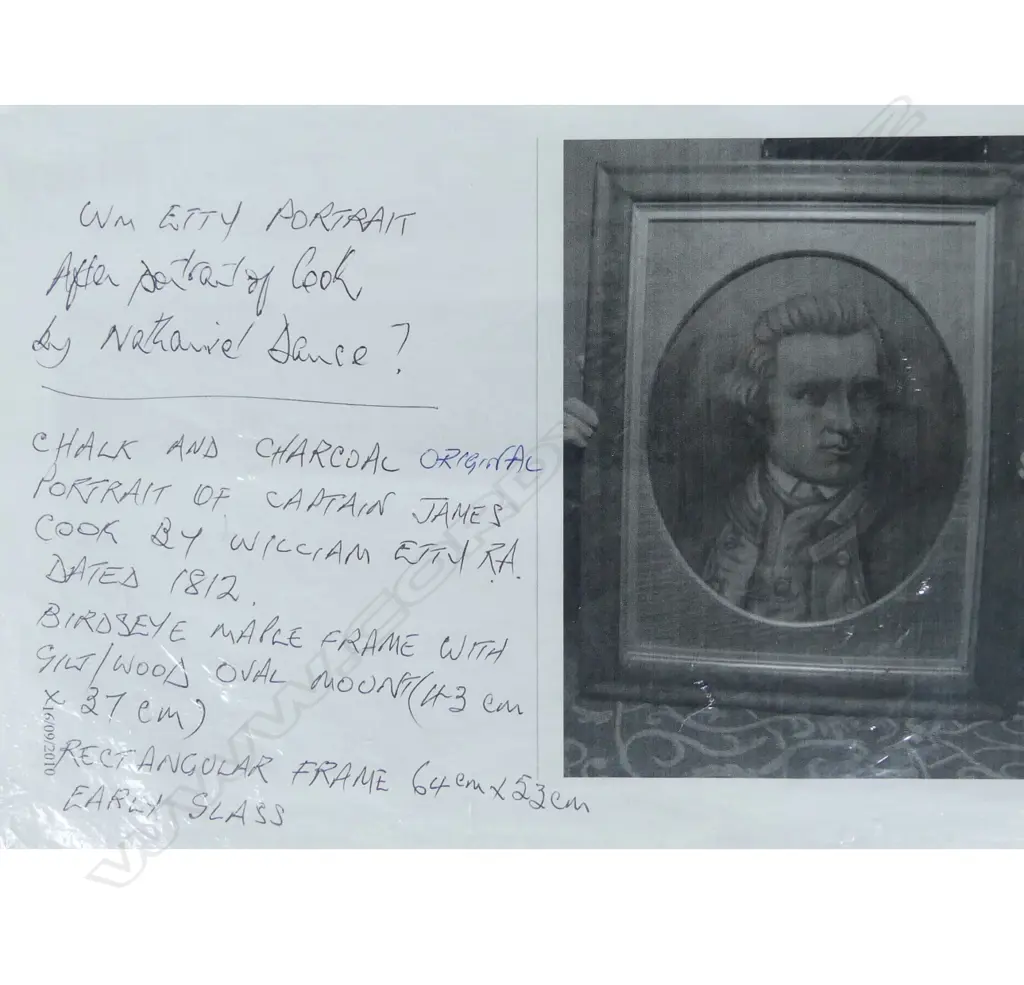 Wm ETTY PORTRAIT
After portrait of Cook
by Nathaniel Dance ?
CHALK AND CHARCOAL ORIGINAL
PORTRAIT OF CAPTAIN JAMES
COOK BY WILLIAM ETTY R.A.
DATED 1812.
BIRDSEYE MAPLE FRAME WITH
GILT/WOOD OVAL MOUNT (43 cm
x 37 cm)
16/09/2010
RECTANGULAR FRAME 64cm x 53cm
EARLY GLASS